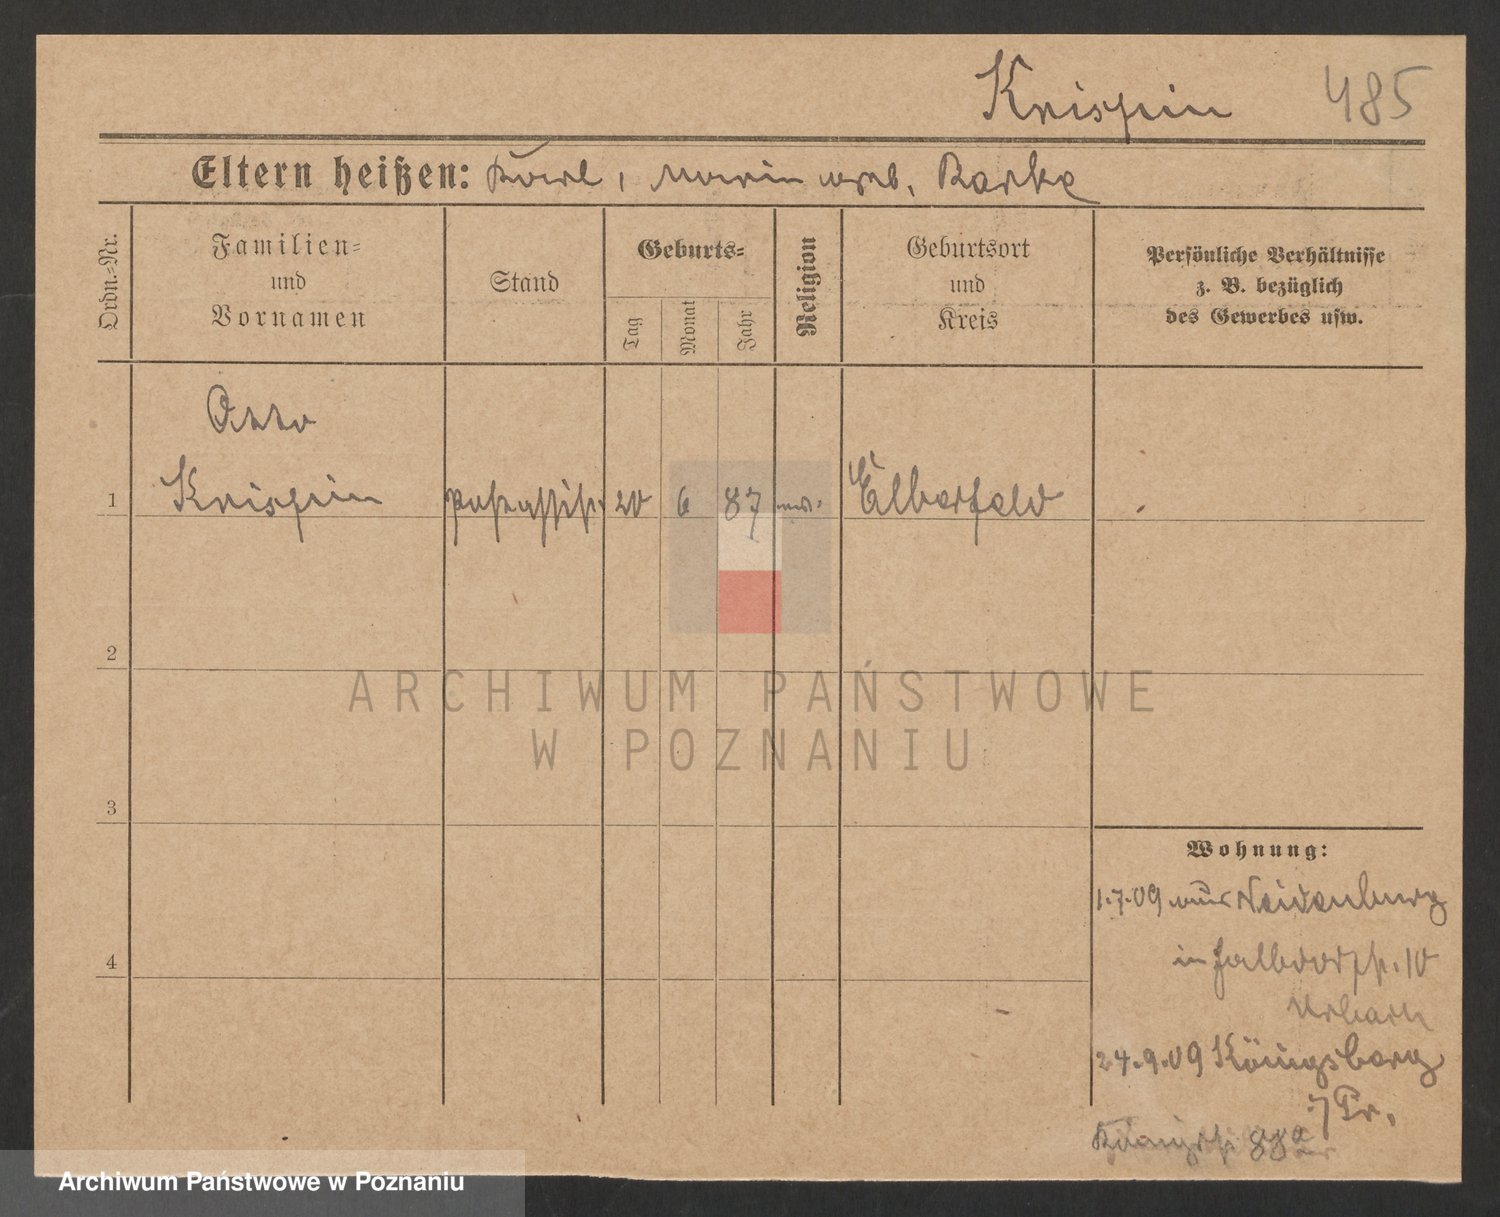 Krispin 485
Eltern heißen: Karl, Maria geb. Barke
Ordn.=Nr.
Familien=
und
Vornamen
Stand
Geburts=
Tag
Monat
Jahr
Religion
Geburtsort
und
Kreis
Persönliche Verhältnisse
z. B. bezüglich
des Gewerbes usw.
Otto
1 Krispin Postassist. 20 6 87 Elberfeld
2
3
4
Wohnung:
1.7.09 aus Neidenburg
in 10
24.9.09 Königsberg
i/Pr.
88
ARCHIWUM PAŃSTWOWE
W POZNANIU
Archiwum Państwowe w Poznaniu